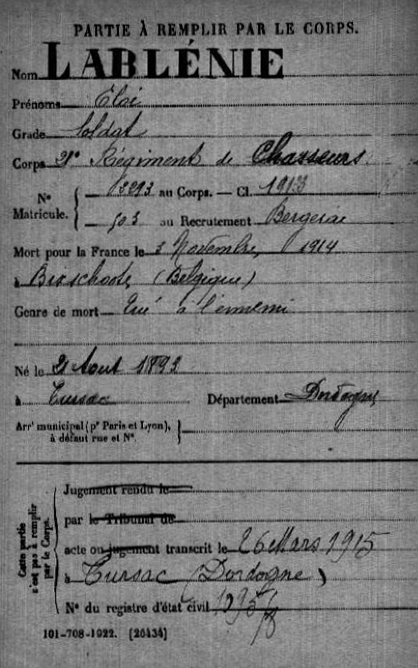 PARTIE À REMPLIR PAR LE CORPS.
Nom LABLÉNIE
Prénoms Eloi
Grade Soldat
Corps 21e Régiment de Chasseurs
N° Matricule. { 13293 au Corps. — Cl. 1913
503 au Recrutement Bergerac
Mort pour la France le 3 Novembre 1914
à Bixschoote (Belgique)
Genre de mort Tué à l'ennemi
Né le 21 Aout 1893
à Tursac Département Dordogne
Arrt municipal (pr Paris et Lyon), à défaut rue et N°. }
Cette partie n'est pas à remplir par le Corps.
Jugement rendu le
par le Tribunal de
acte ou jugement transcrit le 26 Mars 1915
à Tursac (Dordogne)
N° du registre d'état civil
101-708-1922. [26434]